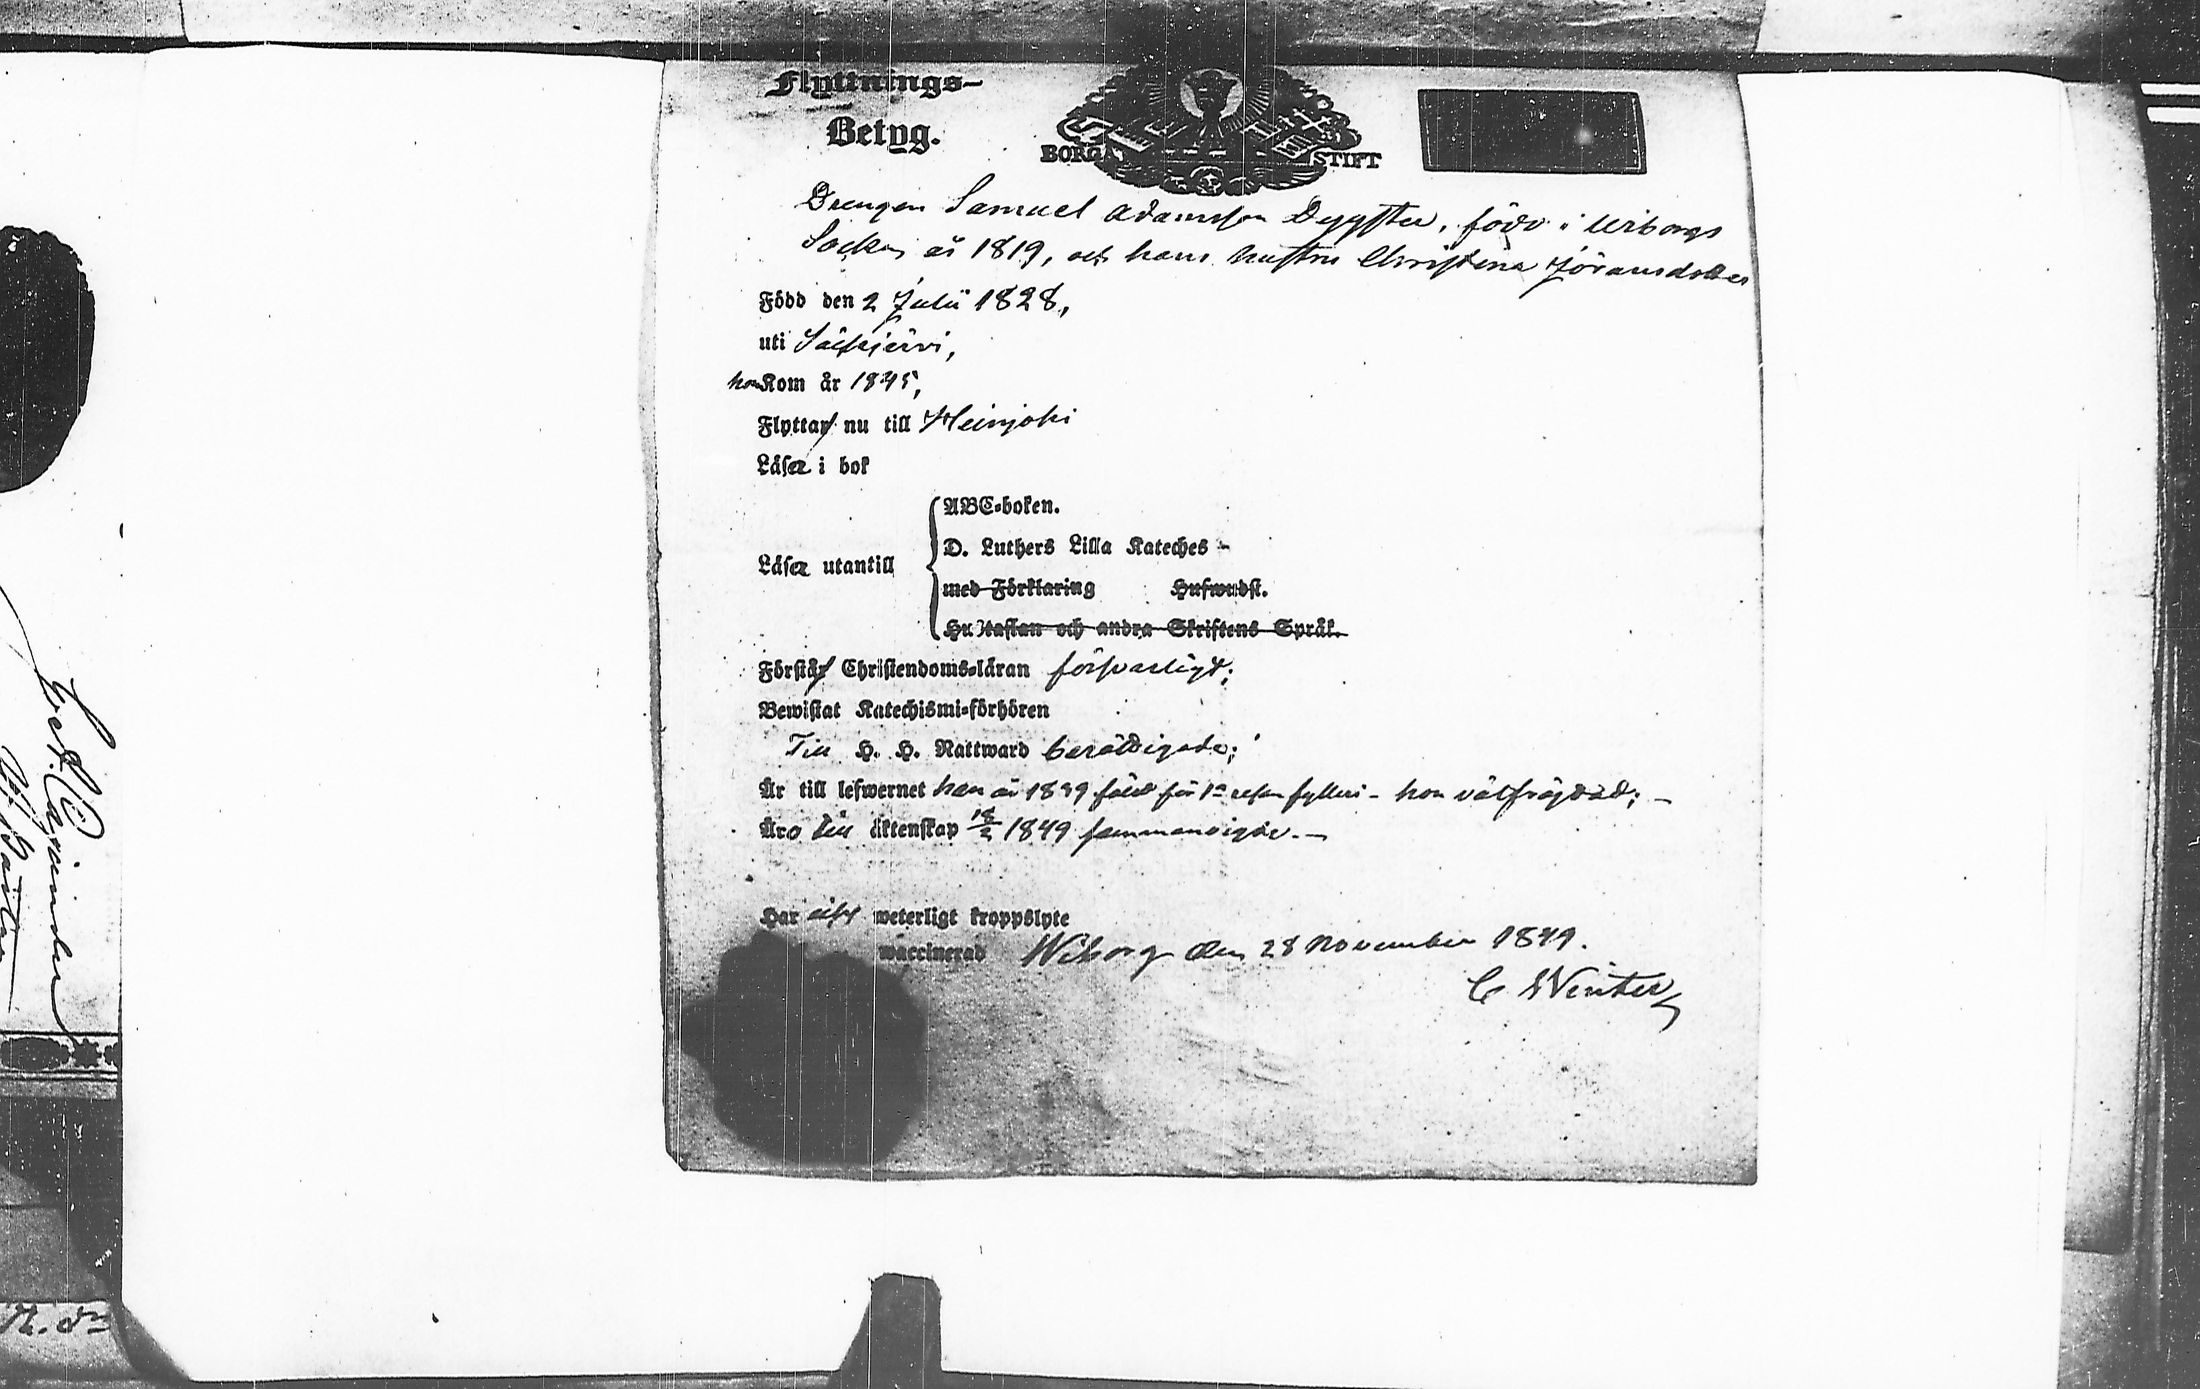 Flyttnings-
Betyg.
BORGÅ STIFT
Drengen Samuel Adamsson DygSter, född i Wiborgs
Socken år 1819, och hans hustru Christina Jöransdotter
Född den 2 Julii 1828,
uti Säkjärvi,
hon Kom år 1845,
Flytta nu till Heinjoki
Läsa i bok
Läsa utantill
ABC-boken.
D. Luthers Lilla Kateches
med Förklaring Hufwudst.
Hustaflan och andra Skriftens Språk.
Förstå Christendoms-läran försvarligt;
Bewistat Katechismi-förhören
Till H. H. Nattward berättigade;
Är till lefwernet han år 1839 fäld för 1a resan fylleri - hon välfrägdad; -
Äro till äktenskap 18/2 1849 sammanvigde. -
Har ej weterligt kroppslyte
waccinerad Wiborg den 28 November 1849.
C Winter